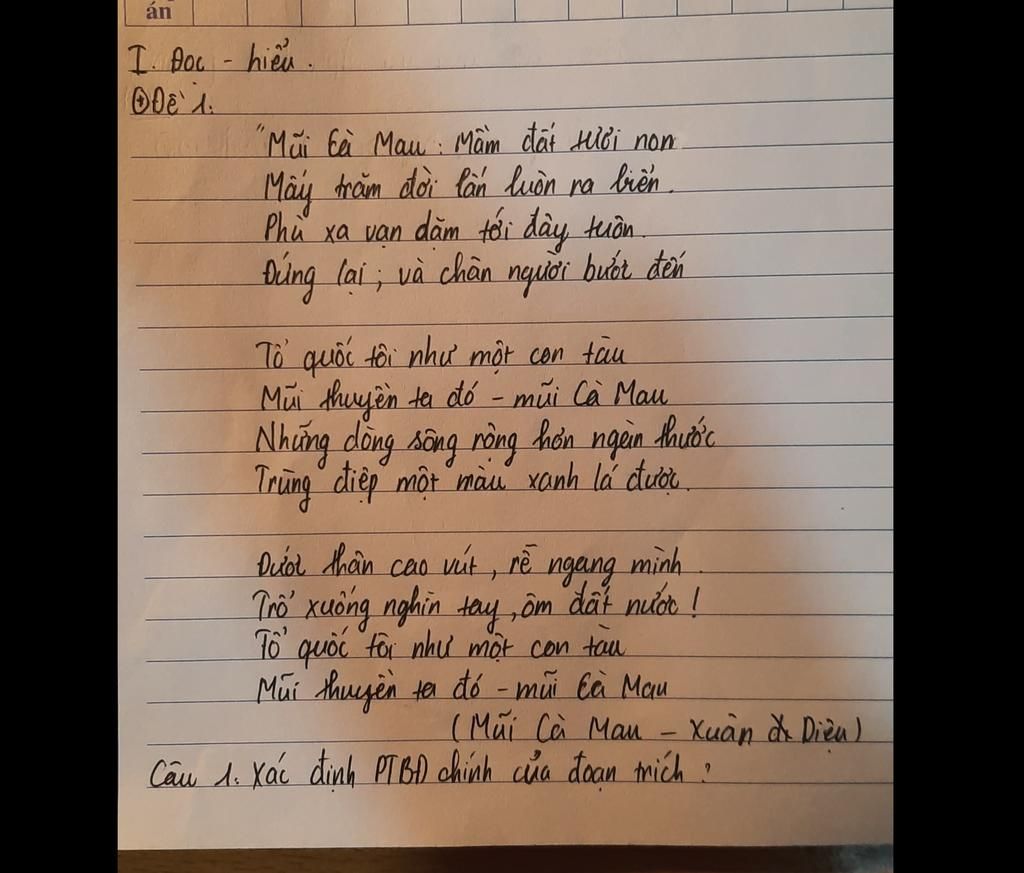 án
I. Đọc - hiểu.
⊕Đề 1.
"Mũi Cà Mau: Mầm đất tươi non
Mấy trăm đời lấn luôn ra biển.
Phù xa vạn dặm tới đây tuôn.
Đứng lại; và chân người bước đến
Tổ quốc tôi như một con tàu
Mũi thuyền ta đó - mũi Cà Mau
Những dòng sông rộng hơn ngàn thước
Trùng điệp một màu xanh lá đước.
Đước thân cao vút, rễ ngang mình.
Trổ xuống nghìn tay, ôm đất nước!
Tổ quốc tôi như một con tàu
Mũi thuyền ta đó - mũi Cà Mau
(Mũi Cà Mau - Xuân Diệu)
Câu 1. Xác định PTBĐ chính của đoạn trích?